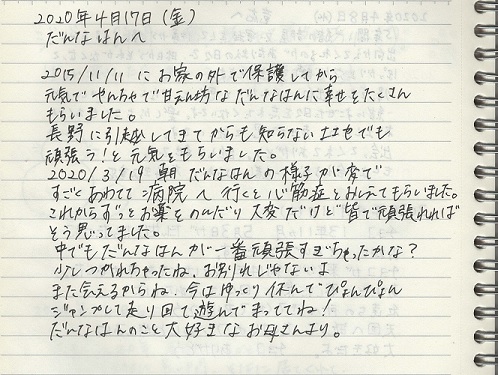 2020年4月17日(金)
だんなはんへ
2015/11/11 にお家の外で保護してから
元気で やんちゃで甘えん坊な だんなはんに幸せをたくさん
もらいました。
長野に引越してきてからも知らない土地でも
頑張ろう!と元気をもらいました。
2020/3/19 朝 だんなはんの様子が変で
すごくあわてて病院へ行くと心筋症とおしえてもらいました。
これからずっとお薬をのんだり大変だけど皆で頑張れれば
そう思ってました。
中でもだんなはんが一番頑張りすぎちゃったかな?
少しつかれちゃったね。お別れじゃないよ
また会えるからね。今はゆっくり休んでぴょんぴょん
ジャンプして走り回って遊んでまっててね!
だんなはんのこと大好きなお母さんより。